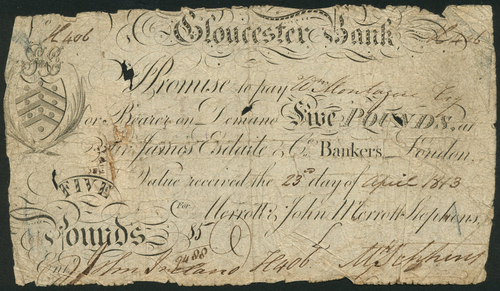 H406 Gloucester Bank H406
I Promise to pay Wm Montague Esq
or Bearer on Demand Five POUNDS, at
Sir James Esdaile & Co. Bankers London.
Value received the 23d day of April 1813
For Merrott & John Merrott Stephens,
FIVE
Pounds £5
2488
Entd John Ireland H406.